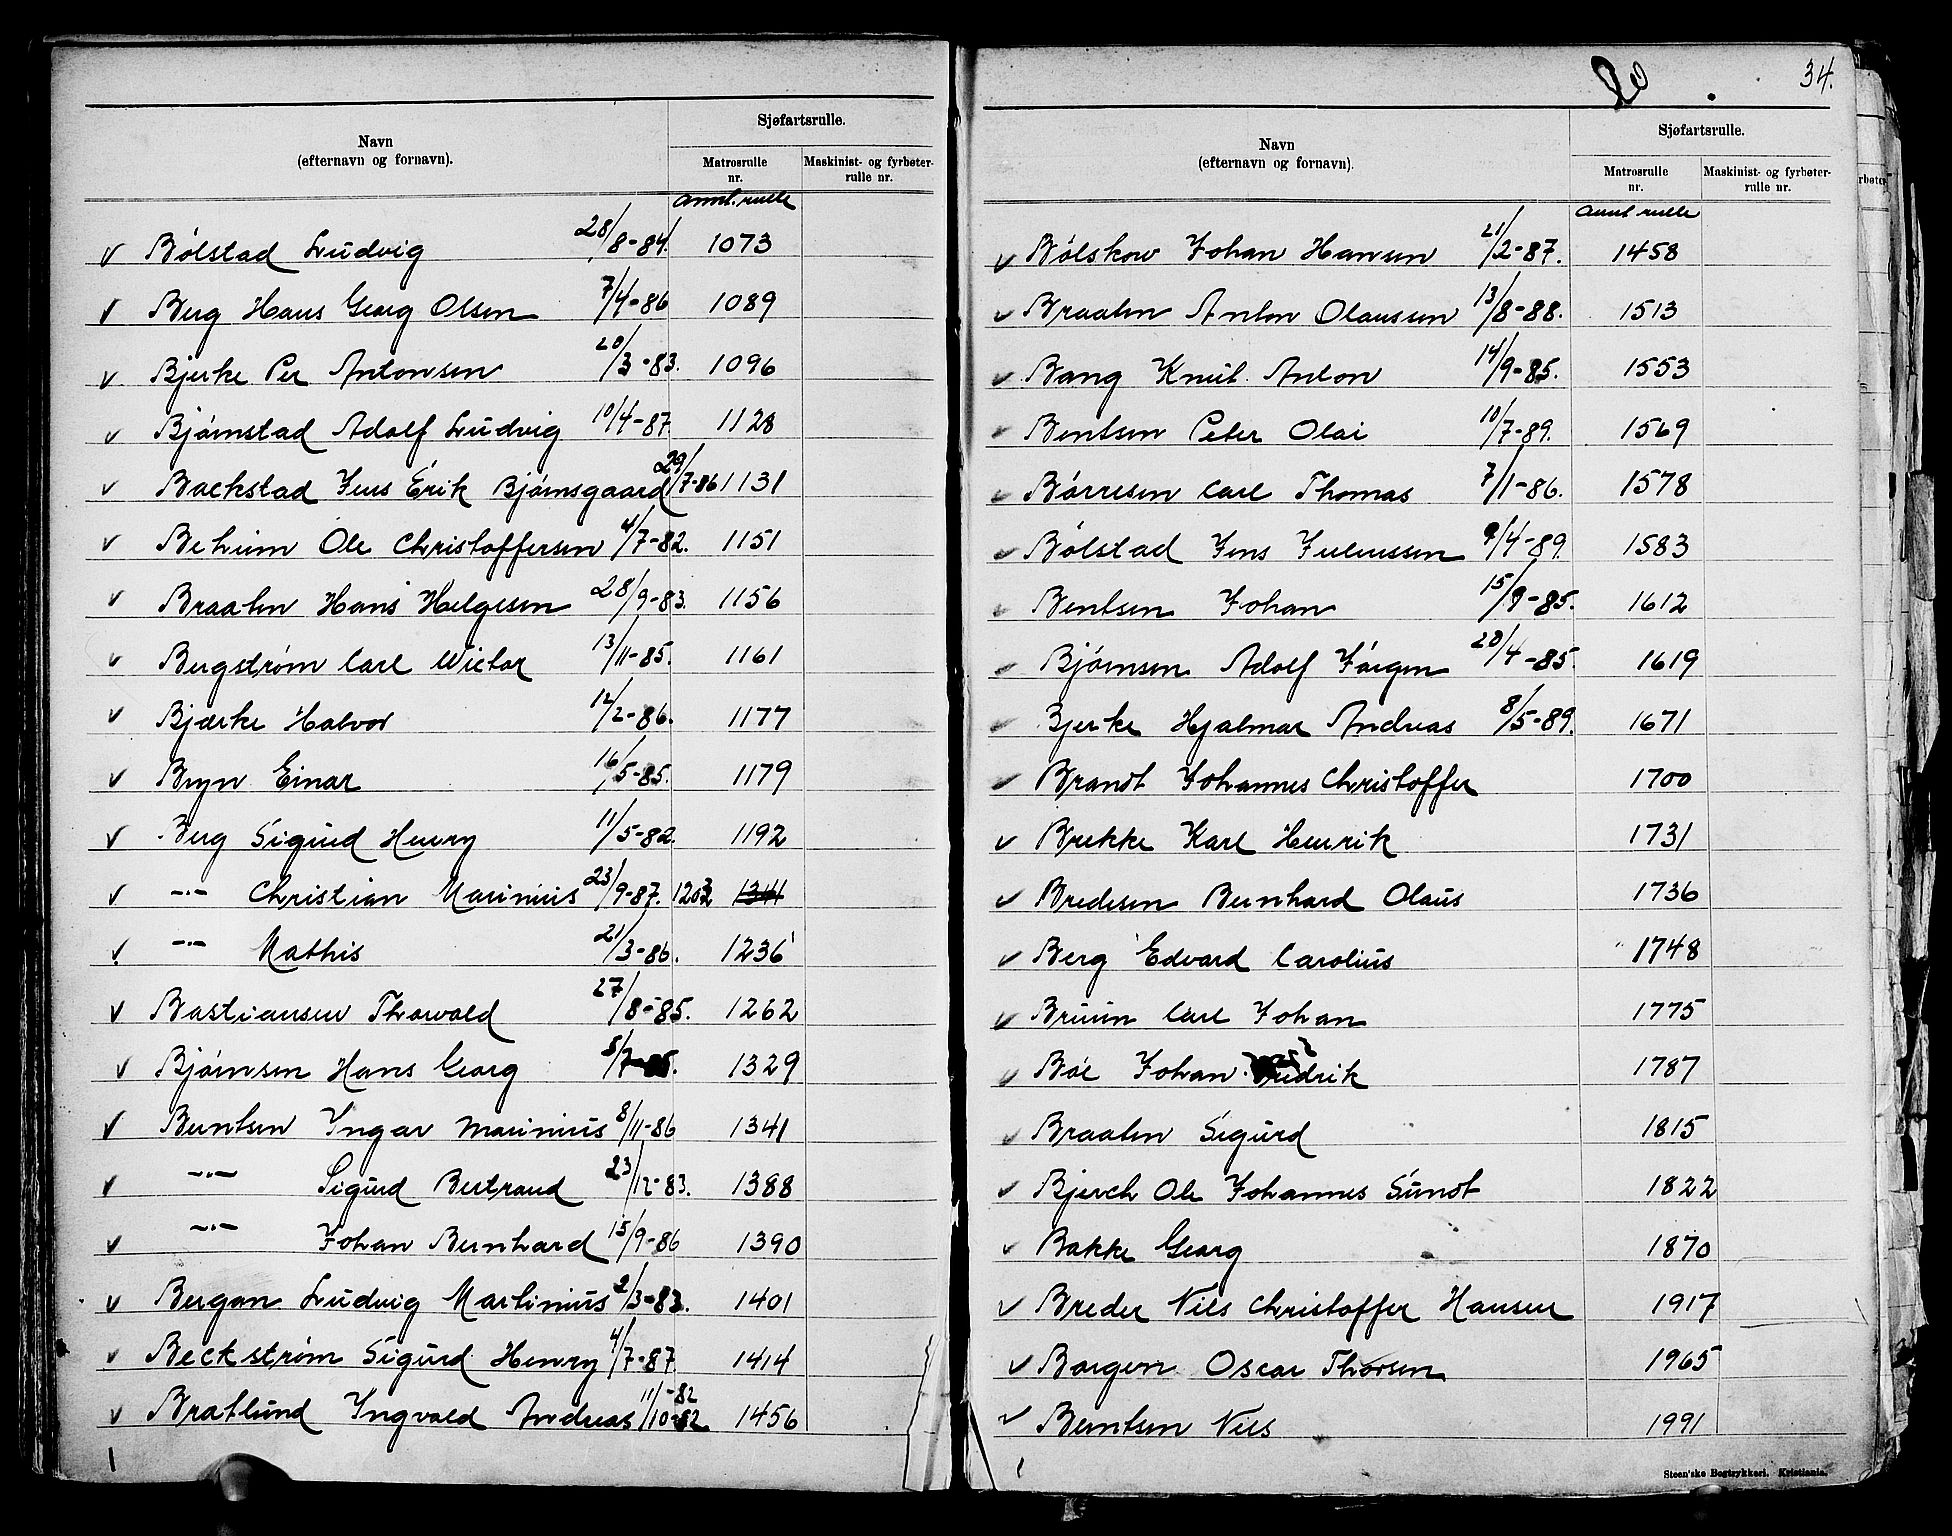 Navn
(efternavn og fornavn).
Sjøfartsrulle.
Matrosrulle
nr.
Maskinist- og fyrbøter-
rulle nr.
Annt. rulle
v Bølstad Ludvig 28/8-84. 1073
v Berg Hans Georg Olsen 7/4-86 1089
v Bjerke Per Antonsen 20/3-83. 1096
v Bjørnstad Adolf Ludvig 10/4-87. 1128
v Backstad Jens Erik Bjørnsgaard 29/7-86 1131
v Beheim Ole Christoffersen 4/7-82. 1151
v Braaten Hans Helgesen 28/9-83. 1156
v Bergstrøm Carl Wictor 13/11-85. 1161
v Bjærke Halvor 12/2-86. 1177
v Bryn Einar 16/5-85. 1179
v Berg Sigurd Henry 11/5-82. 1192
v -"- Christian Marinius 23/9-87. 1203 1341
v -"- Mathis 21/3-86. 1236
v Bastiansen Thorvald 27/8-85. 1262
v Bjørnsen Hans Georg 5/7-85. 1329
v Berntsen Yngar Marinius 8/11-86 1341
v -"- Sigurd Bertrand 23/12-83. 1388
v -"- Johan Bernhard 15/9-86 1390
v Bergan Ludvig Martinius 2/3-83. 1401
v Beckstrøm Sigurd Henry 4/7-87 1414
v Bratlund Yngvald Andreas 11/10-82 11/-82 1456
34.
Navn
(efternavn og fornavn).
Sjøfartsrulle.
Matrosrulle
nr.
Maskinist- og fyrbøter-
rulle nr.
Annt rulle
v Bølskow Johan Hansen 21/2-87. 1458
v Braaten Anton Olaussen 13/8-88. 1513
v Bang Knut Anton 14/9-85. 1553
v Bentsen Peter Olai 10/7-89. 1569
v Børresen Carl Thomas 7/1-86. 1578
v Bølstad Jens Juliussen 9/4-89. 1583
v Bentsen Johan 15/9-85. 1612
v Bjørnsen Adolf Jørgen 20/4-85. 1619
v Bjerke Hjalmar Andreas 8/5-89. 1671
v Brandt Johannes Christoffer 1700
v Brekke Karl Henrik 1731
v Bredesen Bernhard Olaus 1736
v Berg Edvard Carolius 1748
v Bruun Carl Johan 1775
v Bøe Johan Fredrik 1787
v Braaten Sigurd 1815
v Bjerch Ole Johannes Sundt 1822
v Bakke Georg 1870
v Breder Niels Christoffer Hansen 1917
v Borgen Oscar Thorsen 1965
v Berntsen Nils 1991
Steen'ske Bogtrykkeri. Kristiania.